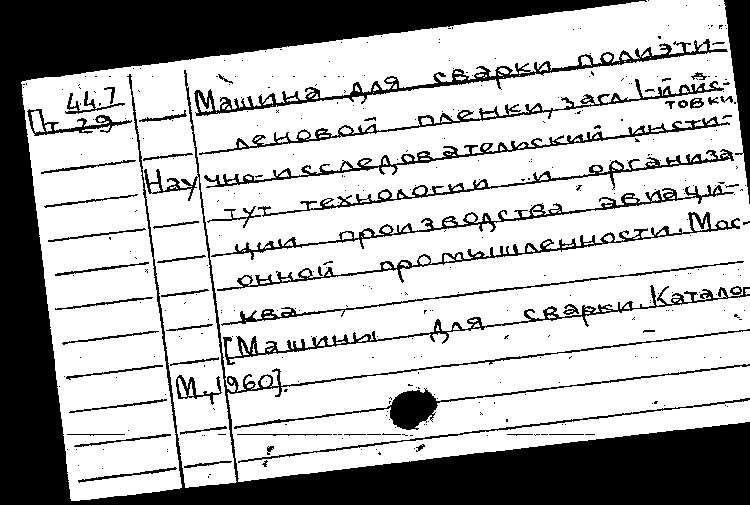 44.7
Пт 29
Машина для сварки полиэти-
леновой пленки, загл. 1-й лис-
товки
Научно-исследовательский инсти-
тут технологии и организа-
ции производства авиаци-
онной промышленности. Мос-
ква
[Машины для сварки. Каталог
М., 1960].